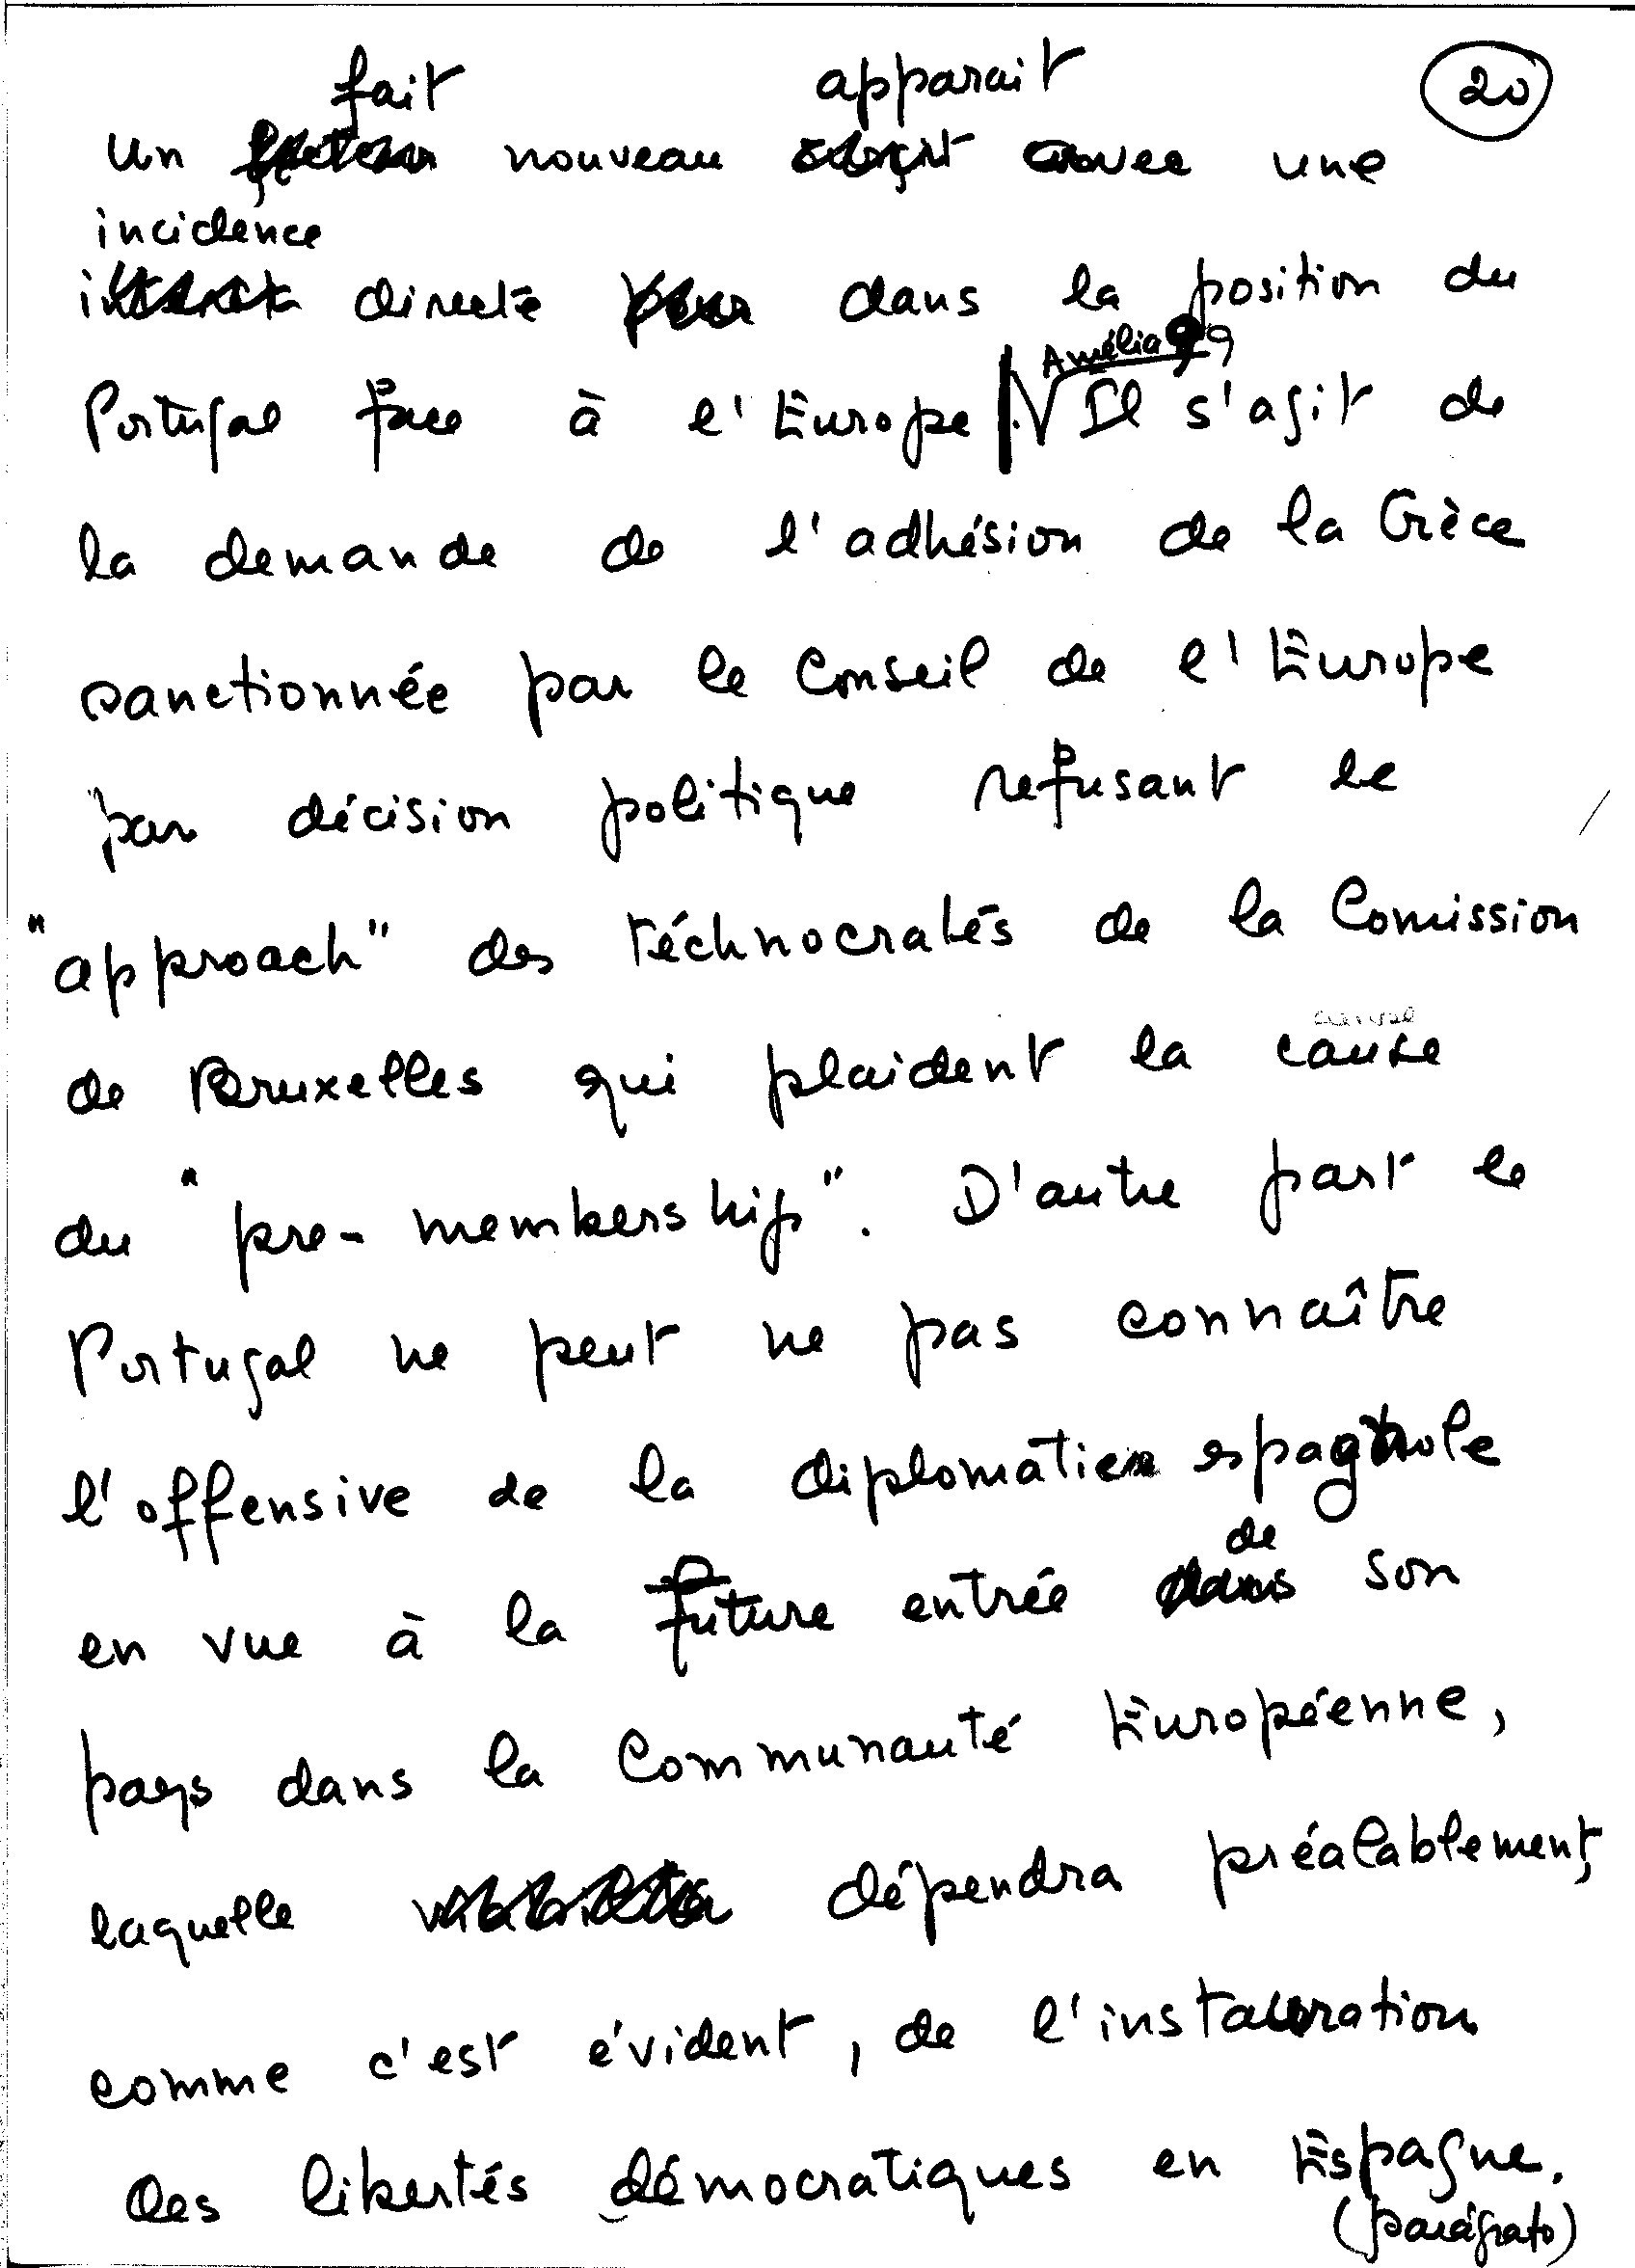 20
fait apparait
Un nouveau avec une
incidence
directe dans la position du
Amélia 99
Portugal face à l'Europe. Il s'agit de
la demande de l'adhésion de la Grèce
sanctionnée par le Conseil de l'Europe
par décision politique refusant le
"approach" des téchnocratés de la Comission
de Bruxelles qui plaident la cause
du "pre-membership". D'autre part le
Portugal ne peut ne pas connaître
l'offensive de la diplomatie espagnole
de
en vue à la future entrée son
pays dans la Communauté Européenne,
laquelle dépendra préalablement,
comme c'est évident, de l'instauration
des libertés démocratiques en Espagne.
(parágrafo)